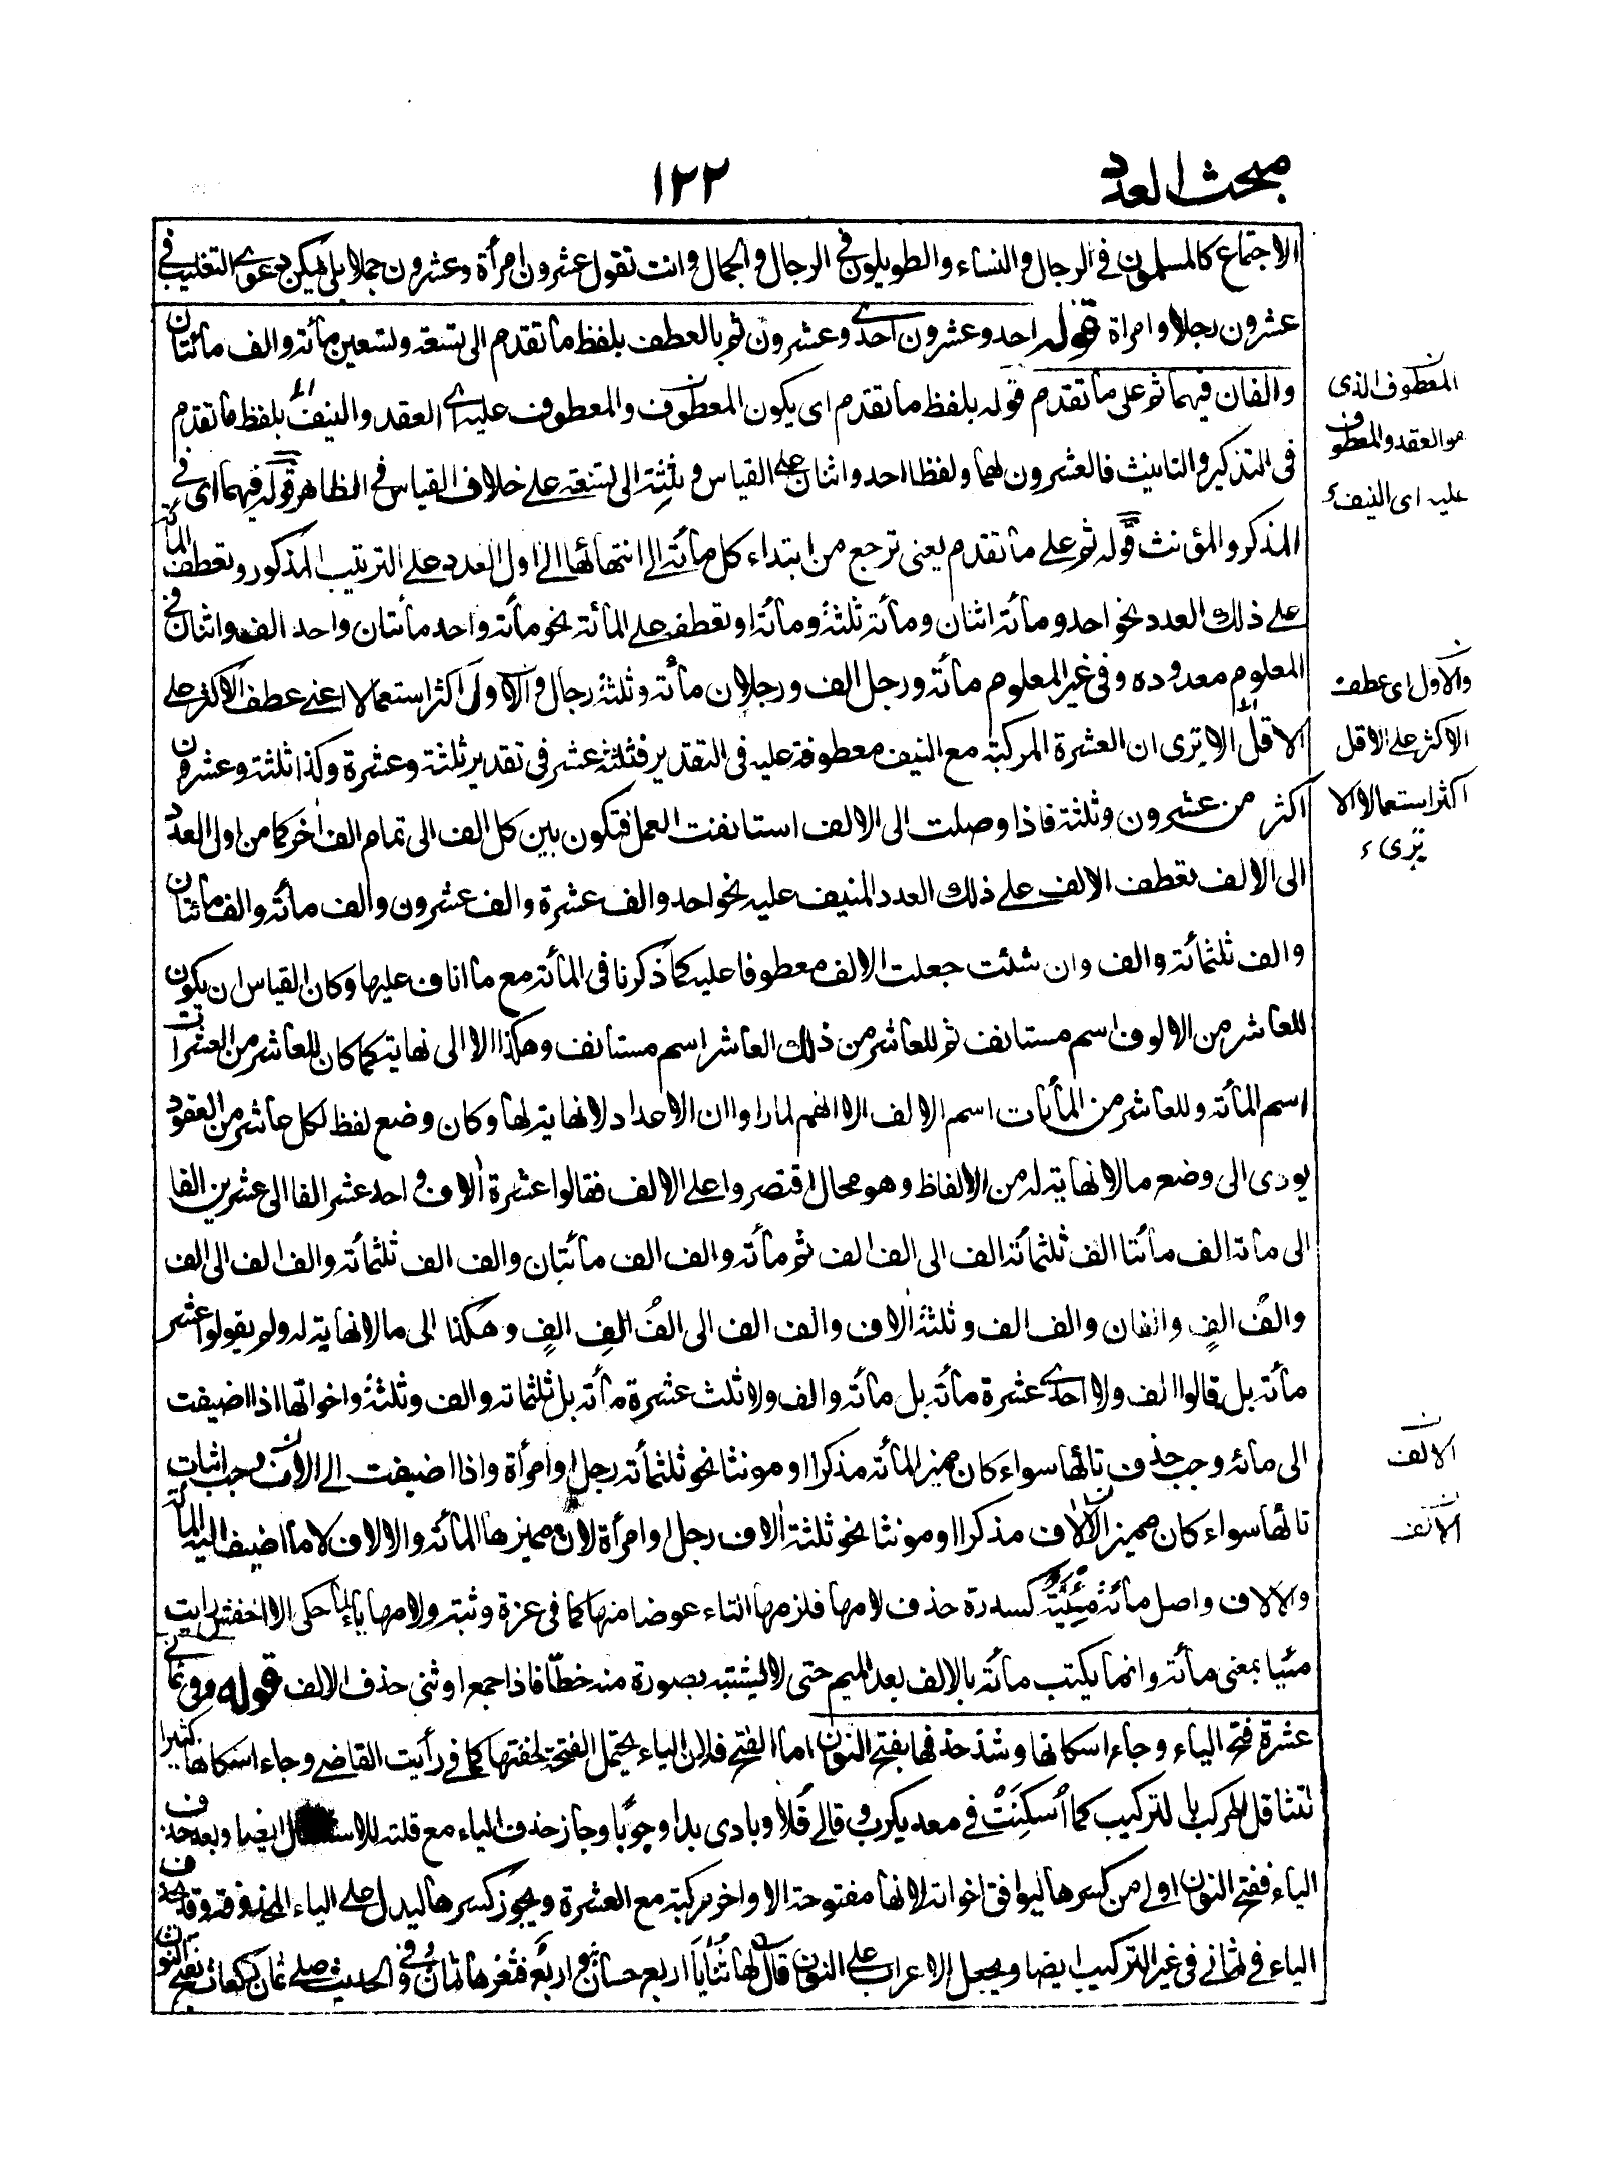 مبحث العدد
١٢٢
الاجتماع كالمسلمون فى الرجال والنساء والطويلون فى الرجال والجمال وانت تقول عشرون امرأة وعشرون جملا بلى يمكن دعوى التغليب فى
عشرون رجلا وامراة قوله احد وعشرون احدى وعشرون ثم بالعطف بلفظ ما تقدم الى تسعة وتسعين مائة والف مائتان
والفان فيهما ثم على ما تقدم قوله بلفظ ما تقدم اى يكون المعطوف والمعطوف عليه اى العقد والنيف بلفظ ما تقدم
فى التذكير والتانيث فالعشرون لهما ولفظا احد واثنان على القياس وثلثة الى تسعة على خلاف القياس فى الظاهر قوله فيهما اى فى
المذكر والمؤنث قوله ثم على ما تقدم يعنى ترجع من ابتداء كل مائة الى انتهائها الى اول العدد على الترتيب المذكور وتعطف المائة
على ذلك العدد نحو احد ومائة اثنان ومائة ثلثة ومائة او تعطف على المائة نحو مائة واحد مائتان واحد الف واثنان فى
المعلوم معدوده وفى غير المعلوم مائة ورجل الف ورجلان مائة وثلثة رجال والاولى اكثر استعمالا اعنى عطف الاكثر على
الاقل الا ترى ان العشرة المركبة مع النيف معطوفة عليه فى التقدير فثلثة عشر فى تقدير ثلثة وعشرة وكذا ثلثة وعشرون
اكثر من عشرون وثلثة فاذا وصلت الى الالف استانفت العمل فتكون بين كل الف الى تمام الف اخر كما من اول العدد
الى الالف تعطف الالف على ذلك العدد المنيف عليه نحو احد والف عشرة والف عشرون والف مائة والف مائتان
والف ثلثمائة والف وان شئت جعلت الالف معطوفا عليه كما ذكرنا فى المائة مع ما اناف عليها وكان القياس ان يكون
للعاشر من الالوف اسم مستانف ثم للعاشر من ذلك العاشر اسم مستانف وهكذا الا الى نهاية كما كان للعاشر من العشرات
اسم المائة وللعاشر من المأيات اسم الالف الا انهم لما راوا ان الاعداد لا نهاية لها وكان وضع لفظ لكل عاشر من العقود
يودى الى وضع ما لا نهاية له من الالفاظ وهو محال اقتصروا على الالف فقالوا عشرة الاف واحد عشر الفا الى عشرين الفا
الى مائة الف مائتا الف ثلثمائة الف الى الف الف ثم مائة والف الف مائتان والف الف ثلثمائة والف الف الى الف
والف الف والفان والف الف وثلثة الاف والف الف الى الف الف الف وهكذا الى ما لا نهاية له ولم يقولوا عشر
مائة بل قالوا الف ولا احدى عشرة مائة بل مائة والف ولا ثلث عشرة مائة بل ثلثمائة والف وثلثة واخواتها اذا اضيفت
الى مائة وجب حذف تائها سواء كان مميز المائة مذكرا او مونثا نحو ثلثمائة رجل او امرأة واذا اضيفت الى الالاف وجب اثبات
تائها سواء كان مميز الالاف مذكرا او مونثا نحو ثلثة الاف رجل او امرأة لان مميزها المائة والالاف لا ما اضيف اليه المائة
والالاف واصل مائة مئية كسدرة حذف لامها فلزمها التاء عوضا منها كما فى عزة وثبة ولامها ياء لما حكى الاخفش رايت
مئيا بمعنى مائة وانما يكتب مائة بالالف بعد الميم حتى لا يشتبه بصورة منه خطّا فاذا جمع او ثنى حذف الالف قوله وفى ثمانى
عشرة فتح الياء وجاء اسكانها وشذ حذفها بفتح النون اما الفتح فلان الياء يحتمل الفتحة لخفتها كما فى رأيت القاضى وجاء اسكانها كثيرا
لتثاقل المركب بالتركيب كما أسكنت فى معديكرب وقالى قلا وبادى بدا وجوبا وجاز حذف الياء مع قلته ايضا وبعد حذف
الياء ففتح النون اولى من كسرها ليوافق اخواته لانها مفتوحة الاواخر مركبة مع العشرة ويجوز كسرها ليدل على الياء المحذوفة وقد حذف
الياء فى ثمانى فى غير التركيب ايضا ويجعل الاعراب على النون قال لها ثنايا اربع حسان واربع فثغرها ثمان وفى الحديث صلى ثمان ركعات بفتح النون
المعطوف الذى
هو العقد والمعطوف
عليه اى النيف
والاول اى عطف
الاكثر على الاقل
اكثر استعمالا الا
ترى
الالف
الالف